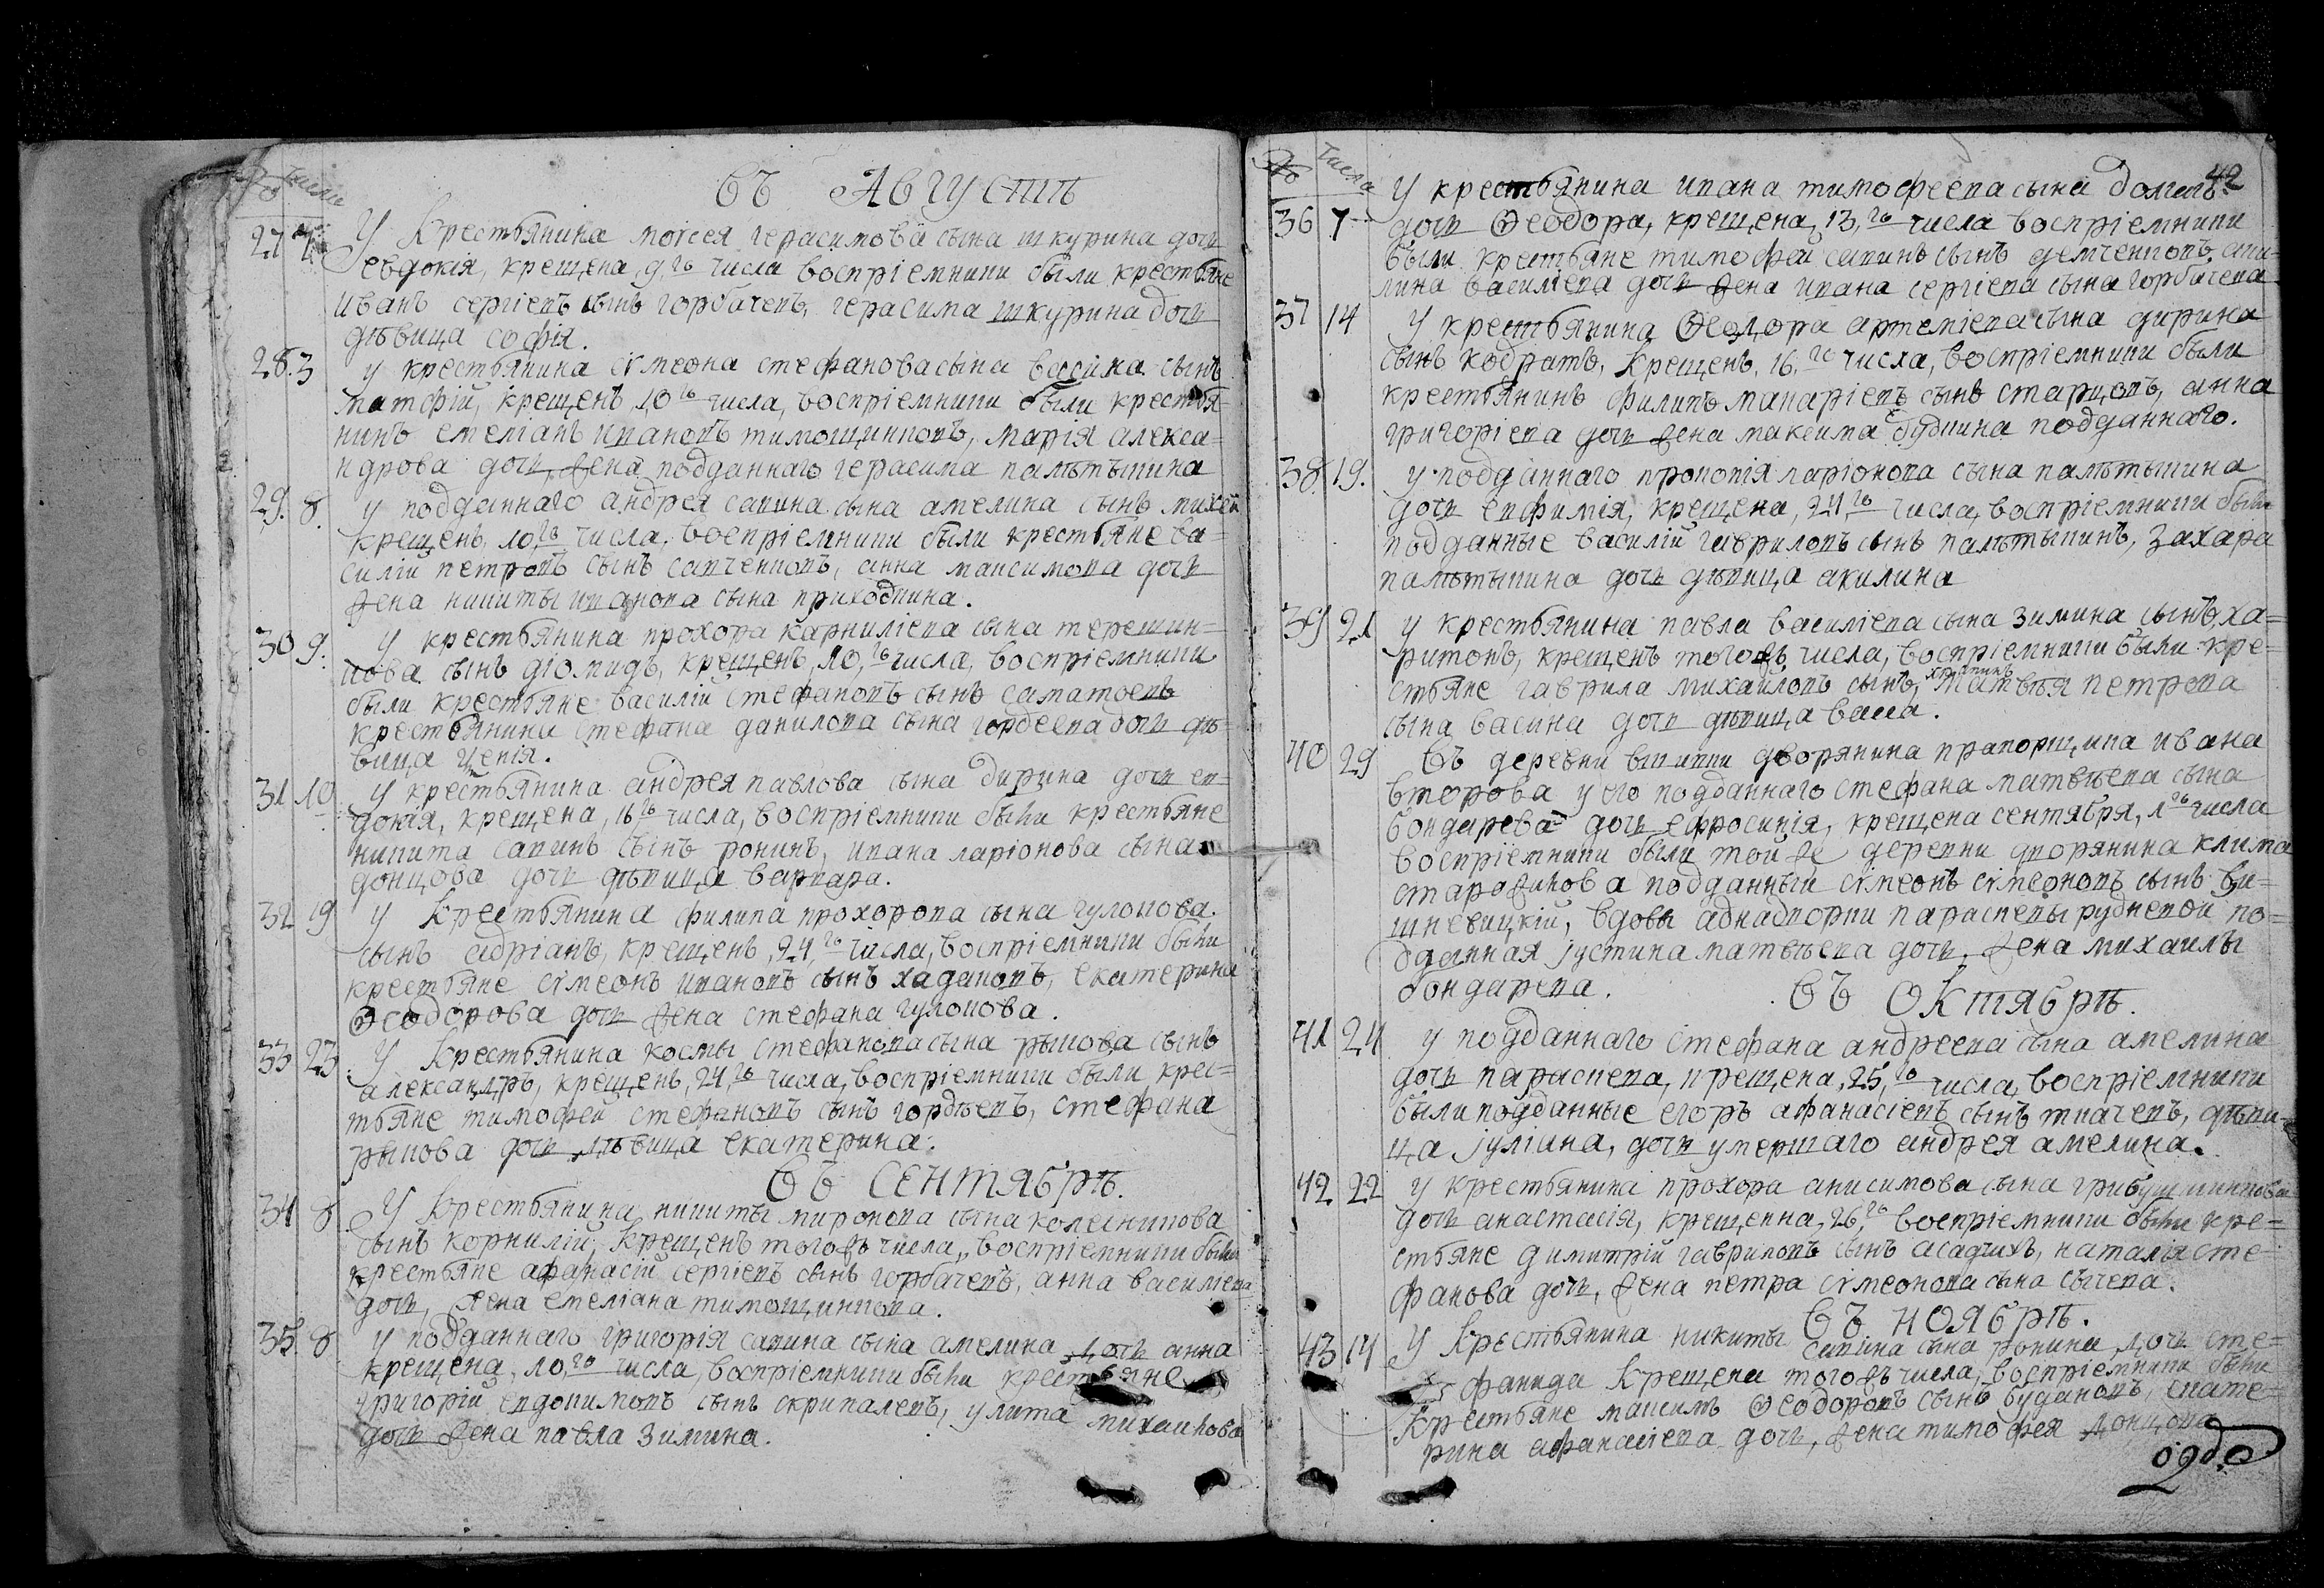 № числа
Въ Августѣ
27 7 У Крестьянина моѵсея герасимова сына шкурина дочь
евдокія, крещена, 9го числа воспріемники были крестьяне
Иванъ сергіевъ сынъ горбачевъ, герасима шкурина дочь
дѣвица софія.
28. 3 у крестьянина сімеона стефанова сына васина сынъ
матфій, крещенъ, 10го числа, воспріемники были крестья-
нинъ емеліанъ ивановъ тимощинковъ, марія алекса=
ндрова дочь, жена подданнаго герасима палѣтькина
29. 8. у подданнаго андрея савина сына амелина сынъ михей
крещенъ, 10,го числа, воспріемники были крестьяне ва=
силій петровъ сынъ савченковъ, анна максимова дочь
жена никиты иванова сына приходкина.
30 9. у крестьянина прохора карниліева сына терешин=
кова сынъ діомидъ, крещенъ, 10,го числа, воспріемники
были крестьяне василій стефановъ сынъ саматоевъ
крестьянина стефана данилова сына гордеева дочь дѣ=
вица ксенія.
31 10 У крестьянина андрея павлова сына дирина дочь ев=
докія, крещена, 16го числа, воспріемники были крестьяне
никита савинъ сынъ ронинъ, ивана ларіонова сына
донцова дочь дѣвица варвара.
32 19 У Крестьянина филипа прохорова сына гулокова
сынъ адріанъ, крещенъ, 24,го числа, воспріемники были
крестьяне сімеонъ ивановъ сынъ хадановъ, екатерина
Ѳеодорова дочь жена стефана гулокова.
33 23 У Крестьянина космы стефанова сына рыкова сынъ
александръ, крещенъ, 24,го числа, воспріемники были крес=
тьяне тимофей стефановъ сынъ гордѣевъ, стефана
рыкова дочь дѣвица екатерина.
Въ Сентябрѣ.
34 8 У Крестьянина никиты миронова сына колесникова
сынъ корнилій, крещенъ тогожъ числа, воспріемники были
крестьяне афанасій сергіевъ сынъ горбачевъ, анна василіева
дочь, жена емеліана тимощинкова.
35. 8 у подданнаго григорія савина сына амелина дочь анна
крещена, 10,го числа, воспріемники были крестьяне
григорій евдокимовъ сынъ скрипалевъ, улита михайлова
дочь жена павла зимина.
№ числа 42
У крестьянина ивана тимофеева сына
36 7 дочь Ѳеодора, крещена, 13,го числа воспріемники
были крестьяне тимофей савинъ сынъ демченковъ, аки-
лина василіева дочь жена ивана сергіева сына горбачева
37 14 У крестьянина Ѳеодора артеміева сына дирина
сынъ кодратъ, крещенъ, 16,го числа, воспріемники были
крестьянинъ филипъ макаріевъ сынъ старцовъ, анна
григоріева дочь жена максима будкина подданнаго.
38 19. у подданнаго прокопія ларіонова сына палѣтькина
дочь евфимія, крещена, 24,го числа, воспріемники были
подданные василій гавриловъ сынъ палѣтькинъ, захара
палѣтькина дочь дѣвица акилина
39 21 у крестьянина павла василіева сына зимина сынъ, ха=
ритонъ, крещенъ тогожъ числа, воспріемники были кре=
стьяне гаврила михайловъ сынъ, матвѣя петрова
сына васина дочь дѣвица васса.
40 29 Въ деревни дворянина прапорщика ивана
второва у его подданнаго стефана матвѣева сына
бондарева дочь ефросинія, крещена сентября, 1го числа
воспріемники были той же деревни дворянина клима
старожикова подданный сімеонъ сімеоновъ сынъ ви=
шневицкій, вдовы аднадворки параскевы рудневой по=
дданная іустина матвѣева дочь, жена михайлы
бондарева.
Въ Октябрѣ.
41 24 у подданнаго стефана андреева сына амелина
дочь параскева, крещена, 25,го числа, воспріемники
были подданные егоръ афанасіевъ сынъ ткачевъ, дѣви-
ца іуліана, дочь умершаго андрея амелина.
42 22 у крестьянина прохора анисимова сына грибушинкова
дочь анастасія, крещенна, 26,го воспріемники были кре=
стьяне димитрій гавриловъ сынъ асадчихъ, наталія сте=
фанова дочь, жена петра сімеонова сына сычева.
Въ Ноябрѣ.
43 14 У Крестьянина никиты савина сына ронина дочь сте=
фанида Крещена тогожъ числа, воспріемники были
Крестьяне максимъ Ѳеодоровъ сынъ будановъ, екате=
рина афанасіева дочь, жена тимофея донцова